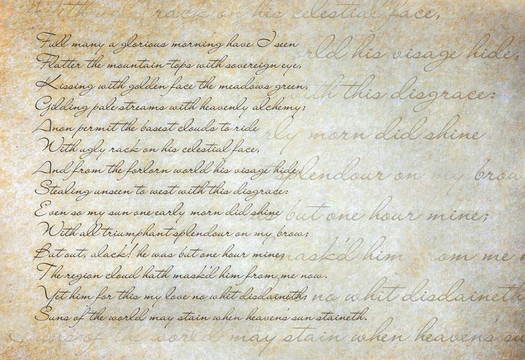 rack on his celestial face,
Full many a glorious morning have I seen
Flatter the mountain-tops with sovereign eye,
rld his visage hide,
Kissing with golden face the meadows green,
Gilding pale streams with heavenly alchemy;
th this disgrace:
Anon permit the basest clouds to ride
rly morn did shine
With ugly rack on his celestial face,
And from the forlorn world his visage hide,
plendour on my brow
Stealing unseen to west with this disgrace:
Even so my sun one early morn did shine
but one hour mine;
With all triumphant splendour on my brow;
But out, alack! he was but one hour mine;
mask'd him
om me n
The region cloud hath mask'd him from me now.
Yet him for this my love no whit disdaineth;
no whit disdaineth
Suns of the world may stain when heaven's sun staineth.
uns of the world may stain when heaven's su